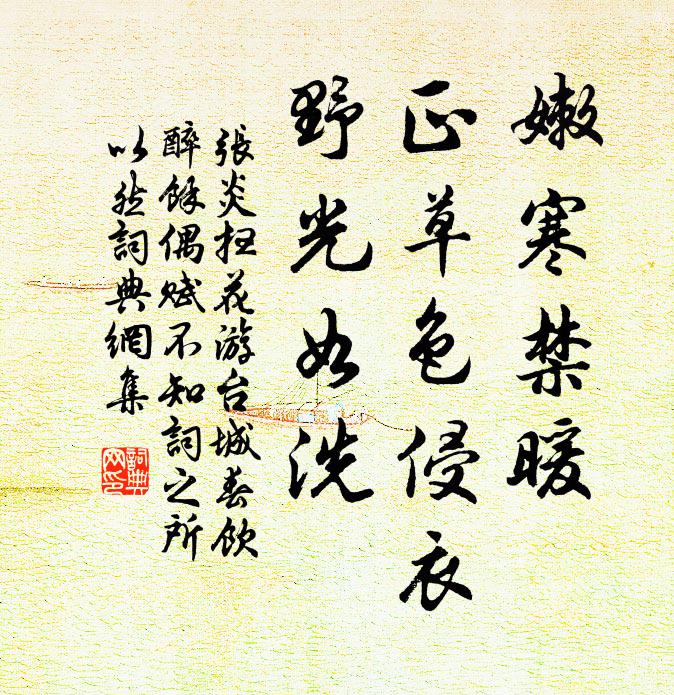 嫩寒禁暖
正草色侵衣
野光如洗
張炎扫花游台城春飲
醉餘偶赋不知詞之所
以然詞典網集
詞典
网印